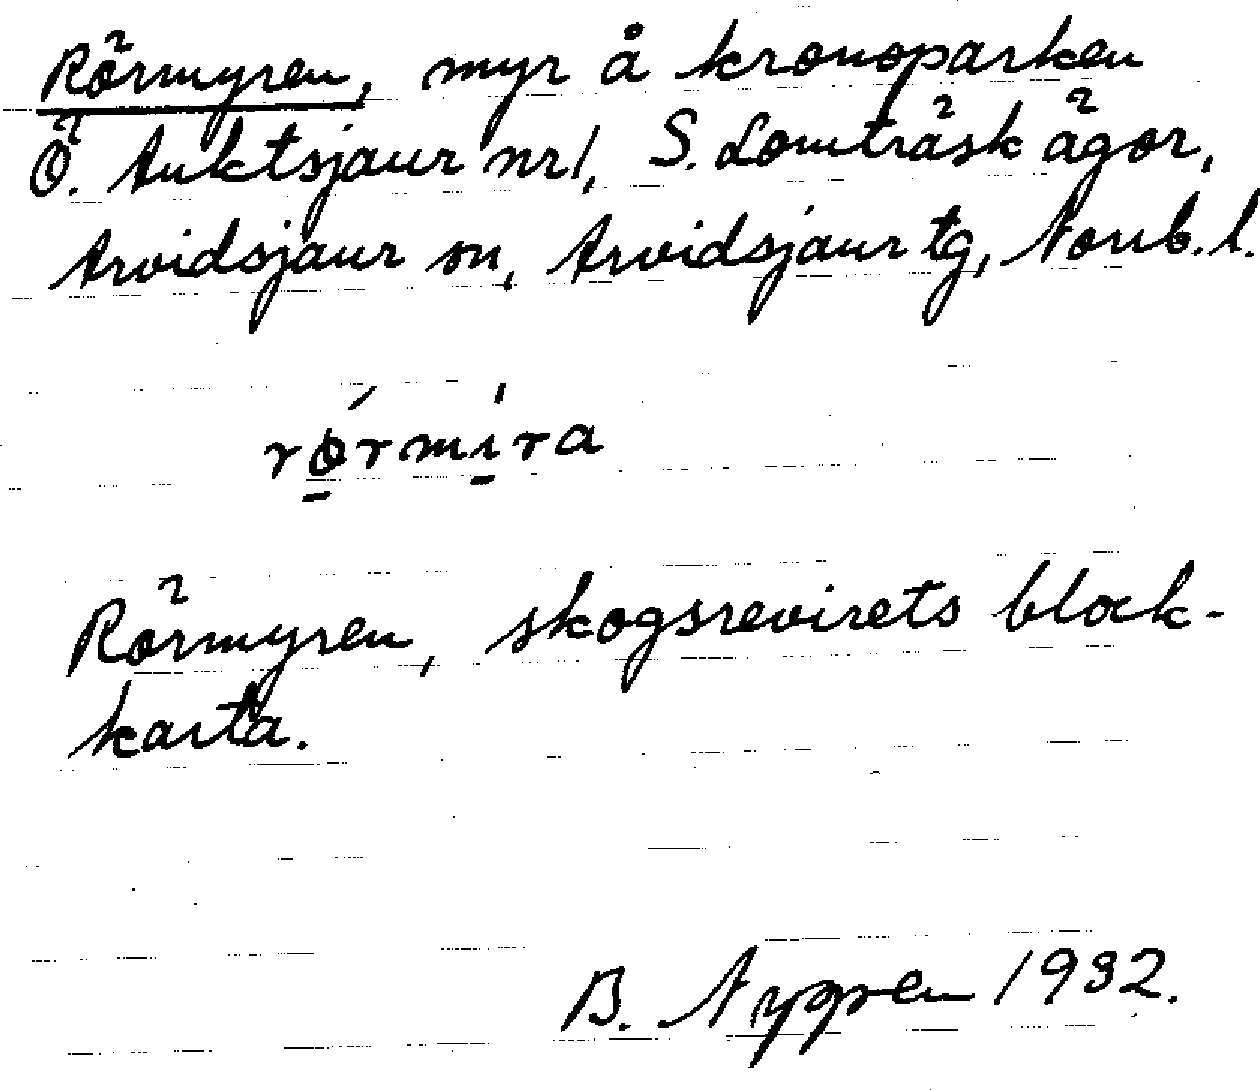 Rörmyren, myr å kronoparken
Ö. Auktsjaur nr 1, S. Lomträsk ägor,
Arvidsjaur sn, Arvidsjaur tg, Norrb. l.
rǿ̱rmı̱́ra
Rörmyren, skogsrevirets block-
karta.
B. Nygren 1932.